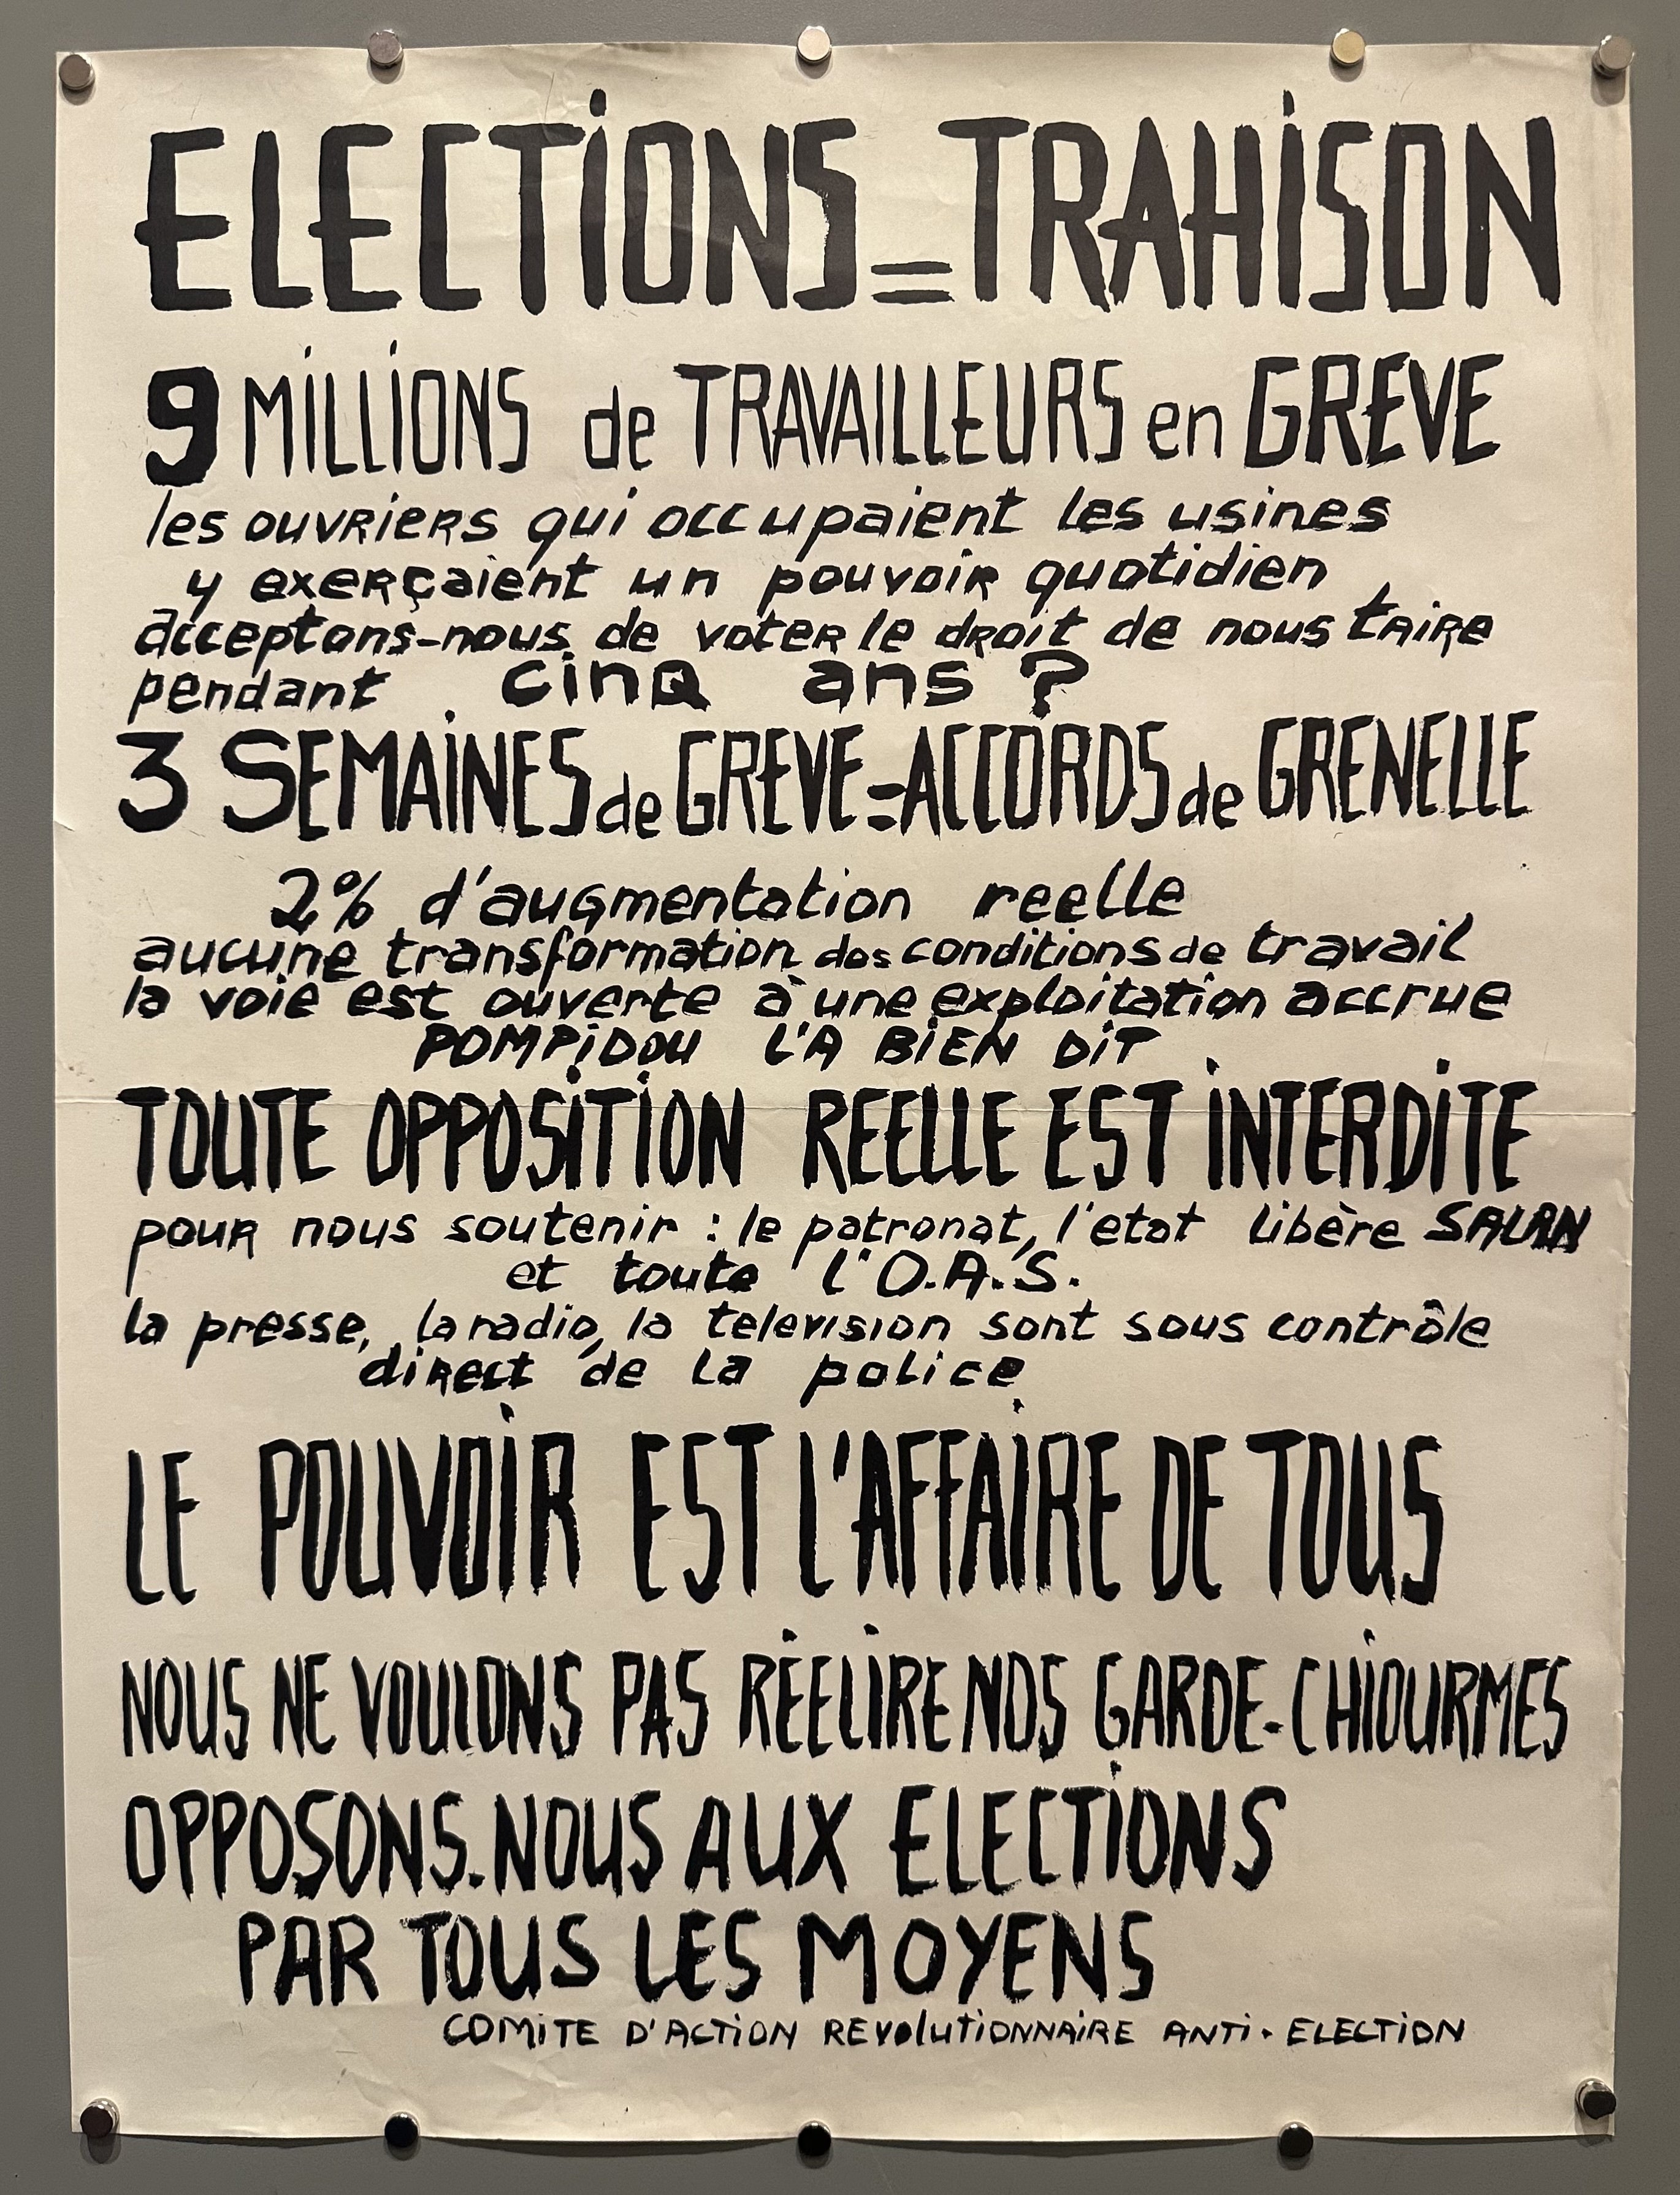 ELECTIONS = TRAHISON
9 MILLIONS de TRAVAILLEURS en GREVE
les ouvriers qui occupaient les usines
y exerçaient un pouvoir quotidien
acceptons-nous de voter le droit de nous taire
pendant cinq ans ?
3 SEMAINES de GREVE = ACCORDS de GRENELLE
2% d'augmentation reelle
aucune transformation des conditions de travail
la voie est ouverte à une exploitation accrue
POMPIDOU L'A BIEN DIT
TOUTE OPPOSITION REELLE EST INTERDITE
pour nous soutenir : le patronat, l'etat libère SALAN
et toute l'O.A.S.
la presse, la radio, la television sont sous contrôle
direct de la police
LE POUVOIR EST L'AFFAIRE DE TOUS
NOUS NE VOULONS PAS RÉELIRE NOS GARDE-CHIOURMES
OPPOSONS-NOUS AUX ELECTIONS
PAR TOUS LES MOYENS
COMITE D'ACTION REVOLUTIONNAIRE ANTI-ELECTION